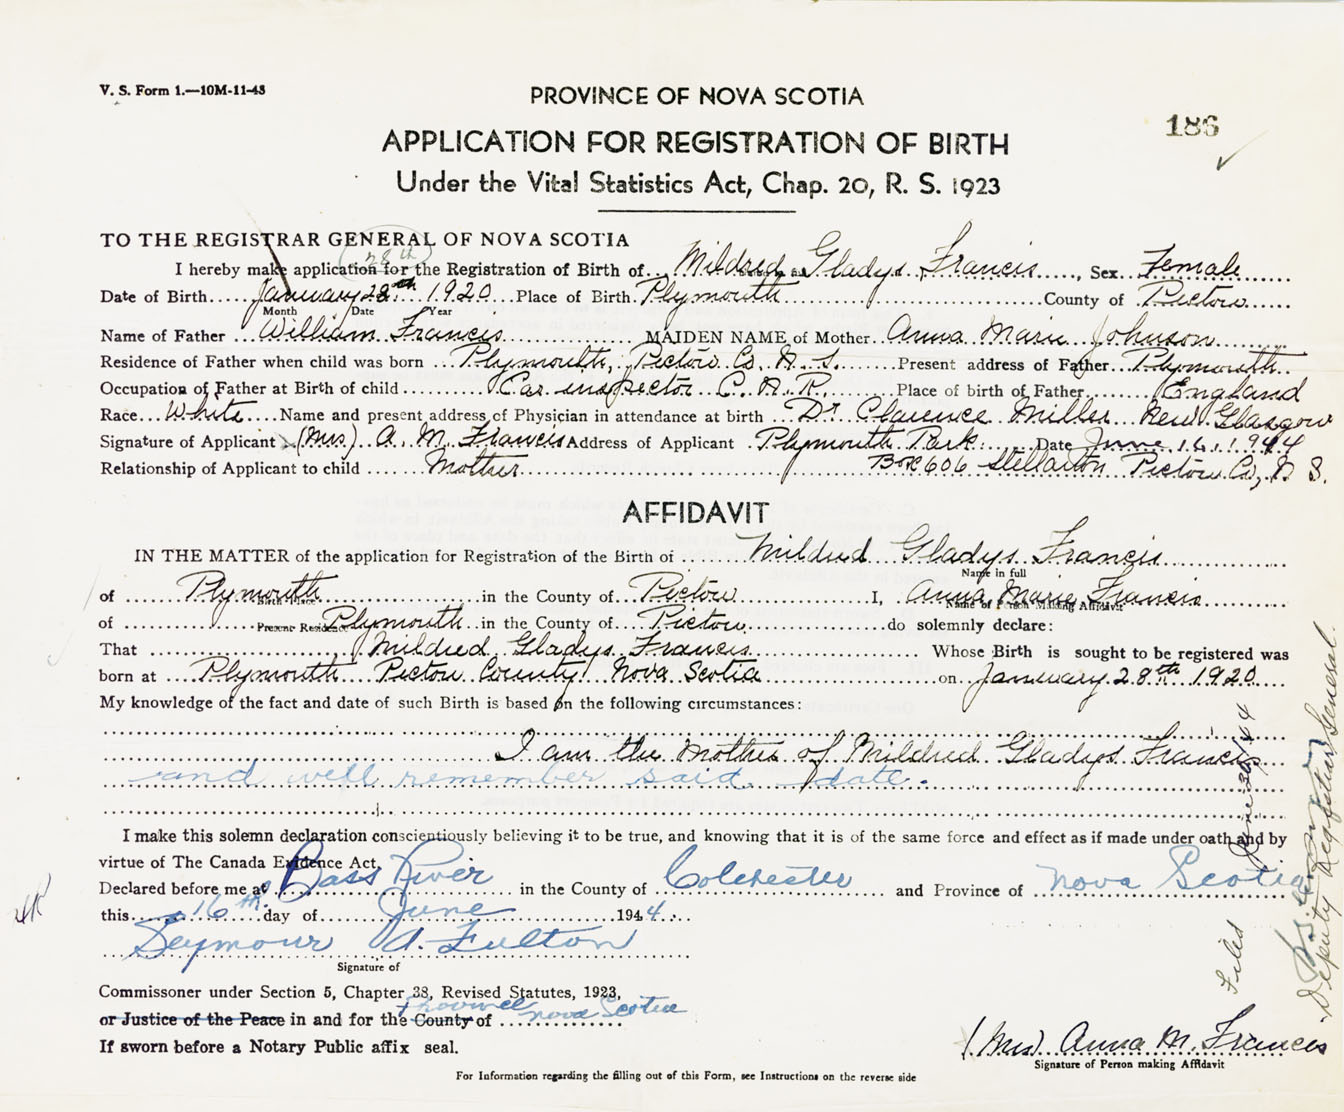 V. S. Form 1.—10M-11-43
PROVINCE OF NOVA SCOTIA
186
APPLICATION FOR REGISTRATION OF BIRTH
Under the Vital Statistics Act, Chap. 20, R. S. 1923
TO THE REGISTRAR GENERAL OF NOVA SCOTIA
28th
I hereby make application for the Registration of Birth of Mildred Gladys Francis, Sex Female
Date of Birth January 28th 1920 Place of Birth Plymouth County of Pictou
Month Date Year
Name of Father William Francis MAIDEN NAME of Mother Anna Marie Johnson
Residence of Father when child was born Plymouth, Pictou Co. N. S. Present address of Father Plymouth
Occupation of Father at Birth of child Car inspector C. N. R. Place of birth of Father England
Race White Name and present address of Physician in attendance at birth Dr. Clarence Miller New Glasgow
Signature of Applicant (Mrs) A. M. Francis Address of Applicant Plymouth Park Date June 16, 1944
Relationship of Applicant to child Mother Box 606 Stellarton Pictou Co, N. S.
AFFIDAVIT
IN THE MATTER of the application for Registration of the Birth of Mildred Gladys Francis
Name in full
of Plymouth in the County of Pictou I, Anna Marie Francis
Birth Place Name of Person Making Affidavit
of Plymouth in the County of Pictou do solemnly declare:
Present Residence
That Mildred Gladys Francis Whose Birth is sought to be registered was
born at Plymouth Pictou County Nova Scotia on January 28th 1920
My knowledge of the fact and date of such Birth is based on the following circumstances:
I am the mother of Mildred Gladys Francis
and well remember said date.
I make this solemn declaration conscientiously believing it to be true, and knowing that it is of the same force and effect as if made under oath and by
virtue of The Canada Evidence Act,
Declared before me at Bass River in the County of Colchester and Province of Nova Scotia
this 16th day of June 1944
Seymour A. Fulton
Signature of
Commissoner under Section 5, Chapter 38, Revised Statutes, 1923,
or Justice of the Peace in and for the County of Province Nova Scotia
If sworn before a Notary Public affix seal.
(Mrs) Anna M. Francis
Signature of Person making Affidavit
For Information regarding the filling out of this Form, see Instructions on the reverse side
Filed June 30/44
Deputy Registrar General